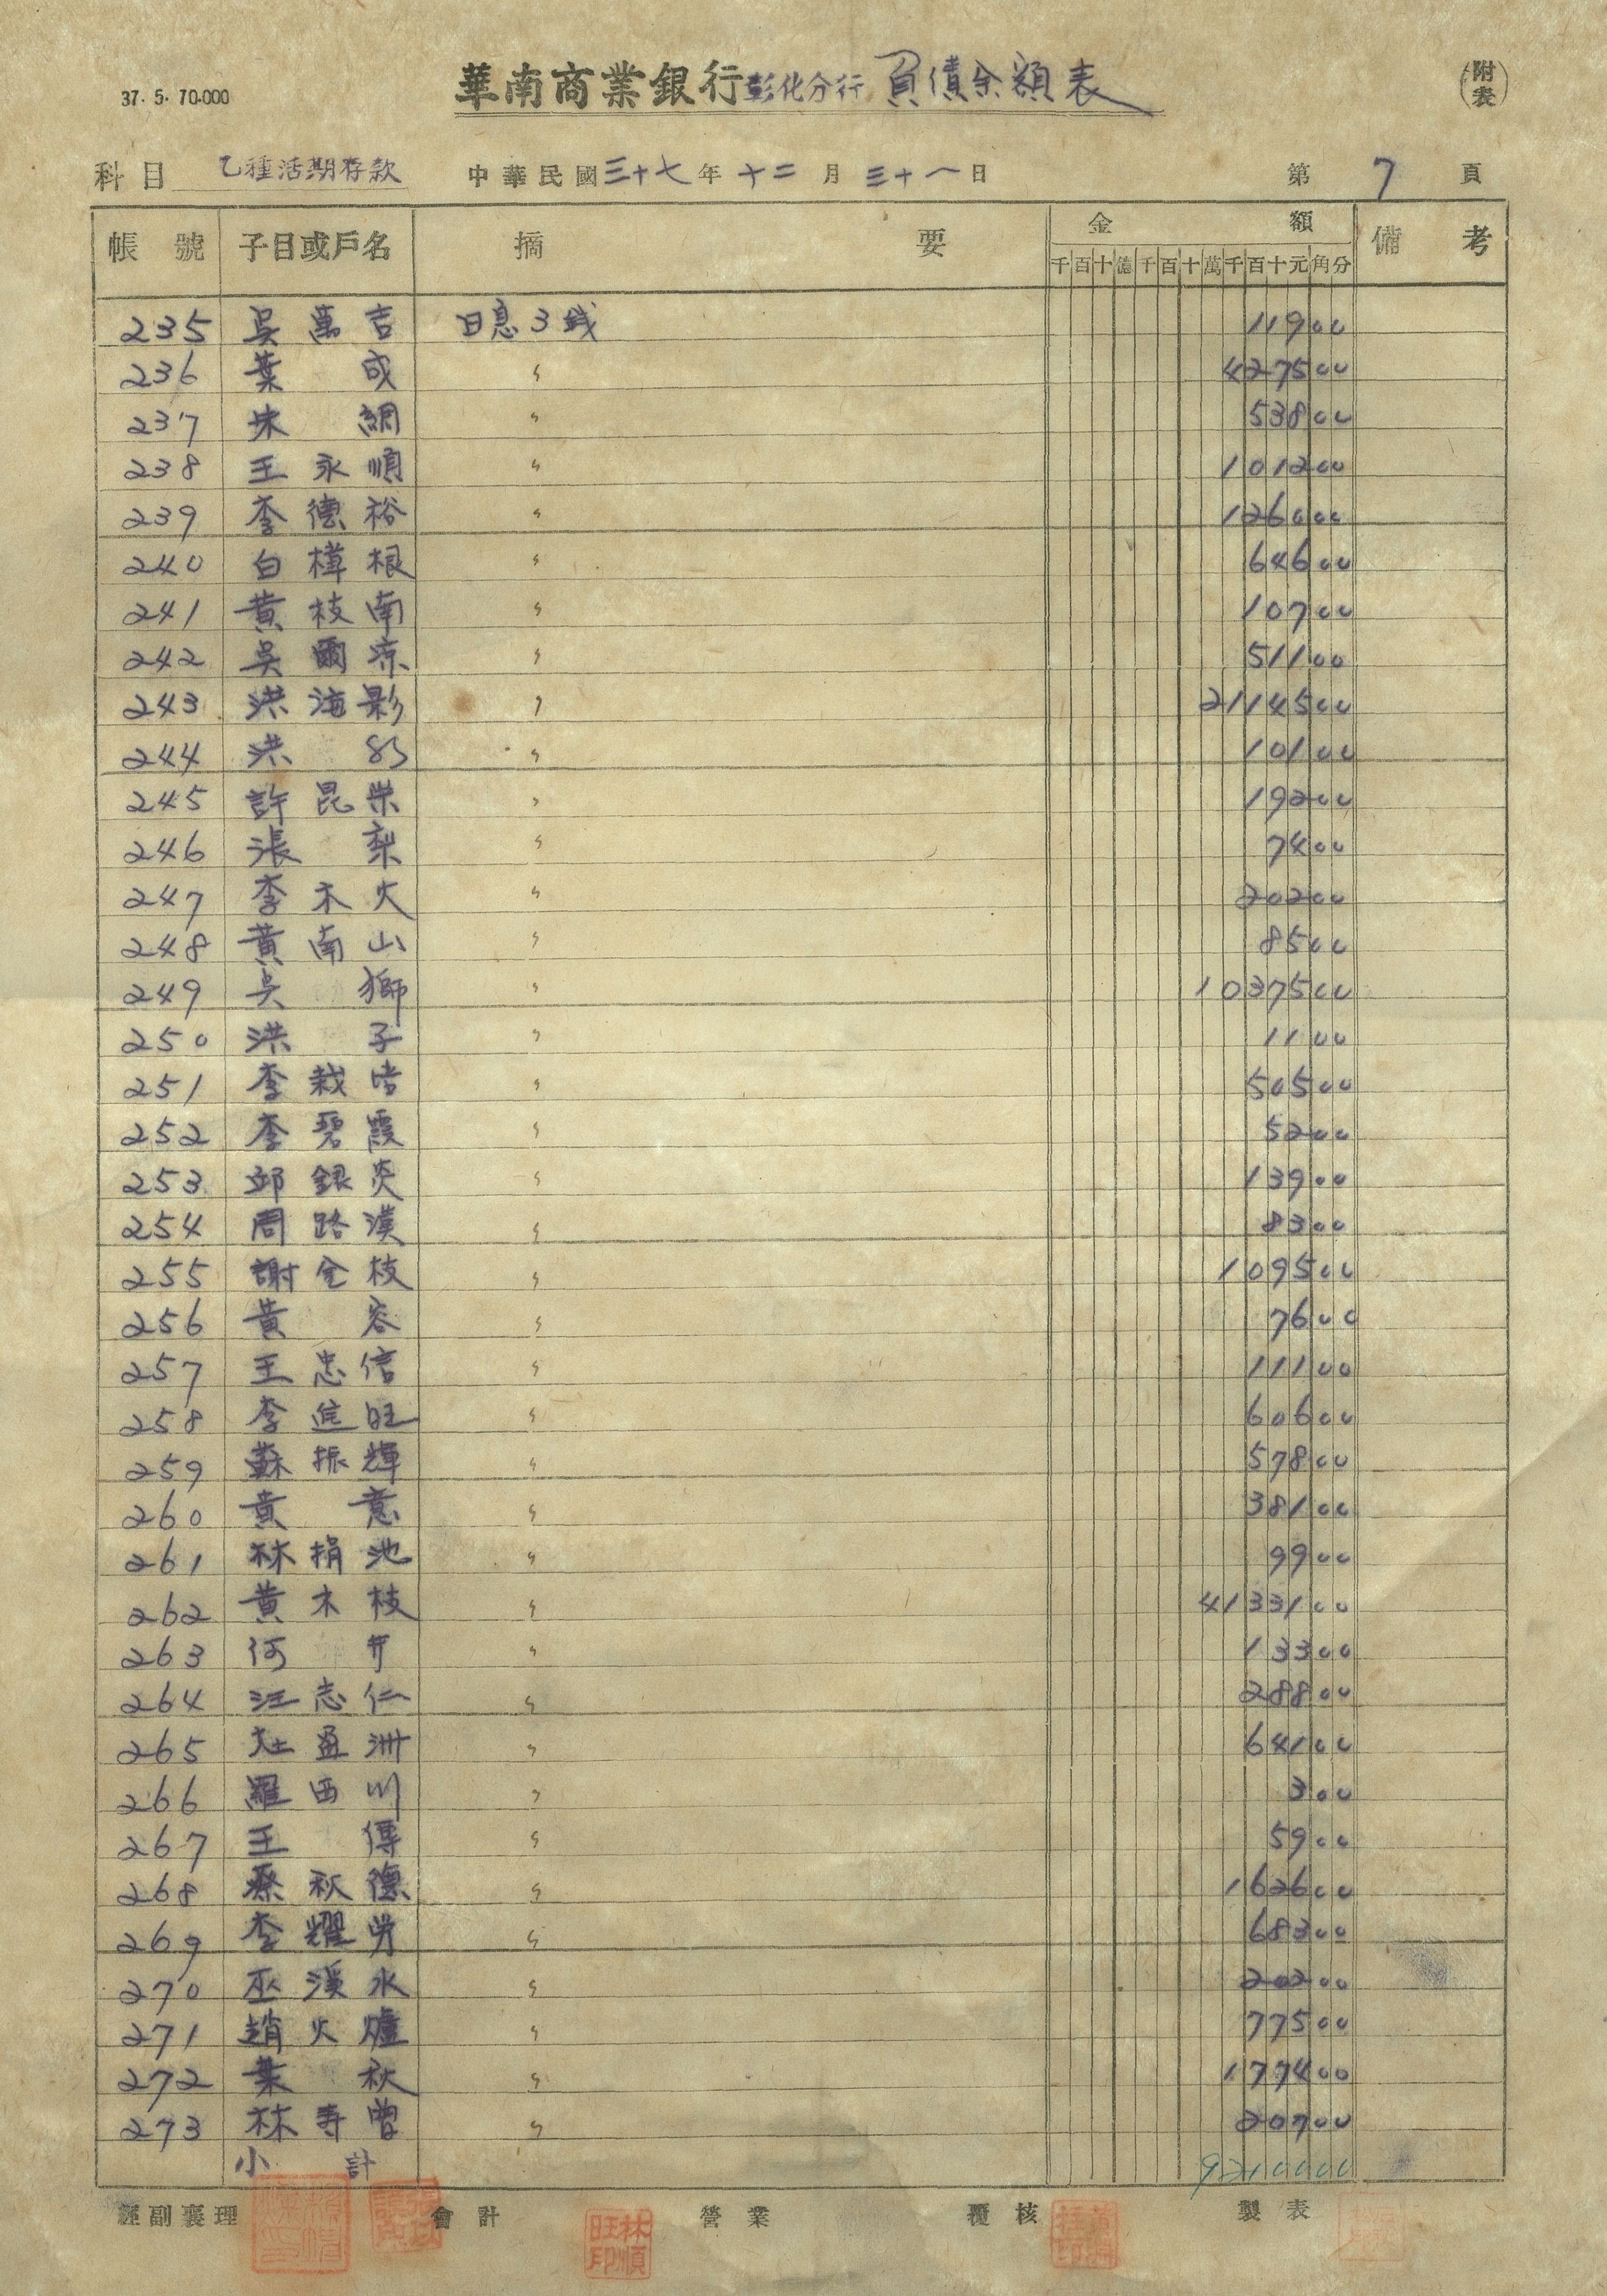 37. 5. 70.000
華南商業銀行彰化分行 負債余額表
(附表)
科目 乙種活期存款 中華民國三十七年十二月三十一日 第 7 頁
帳號 子目或戶名 摘要 金額 備考
千百十億千百十萬千百十元角分
235 吳萬吉 日息3錢 11900
236 葉成 〃 427500
237 綢 〃 53800
238 王永順 〃 101200
239 李德裕 〃 126000
240 白樟根 〃 64600
241 黃枝南 〃 10700
242 吳爾涼 〃 51100
243 洪海影 〃 2114500
244 洪 〃 10100
245 許昆柴 〃 19200
246 張梨 〃 7400
247 李木火 〃 20200
248 黃南山 〃 8500
249 吳獅 〃 1037500
250 洪子 〃 1100
251 李栽 〃 50500
252 李碧霞 〃 5200
253 邱銀炎 〃 13900
254 周路漢 〃 8300
255 謝金枝 〃 109500
256 黃容 〃 7600
257 王忠信 〃 11100
258 李進旺 〃 60600
259 蘇振輝 〃 57800
260 黃意 〃 38100
261 林捐池 〃 9900
262 黃木枝 〃 4133100
263 何 〃 13300
264 汪志仁 〃 28800
265 盈洲 〃 64100
266 羅西川 〃 300
267 王傳 〃 5900
268 蔡秋德 〃 162600
269 李耀 〃 68300
270 巫溪水 〃 20200
271 趙火爐 〃 77500
272 葉秋 〃 177400
273 林寿曾 〃 20700
小計 9210000
經副襄理 會計 營業 覆核 製表
林順旺印